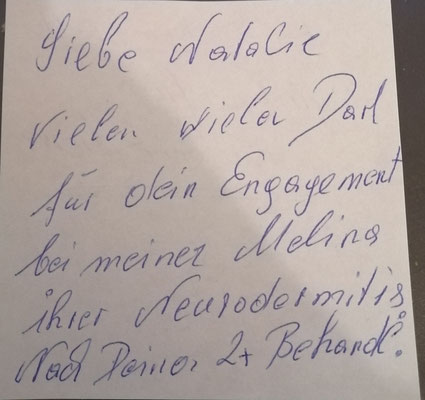 Liebe Natalie
vielen vielen Dank
für dein Engagement
bei meiner Melina
ihrer Neurodermitis
Nach Deiner 2x Behandl.